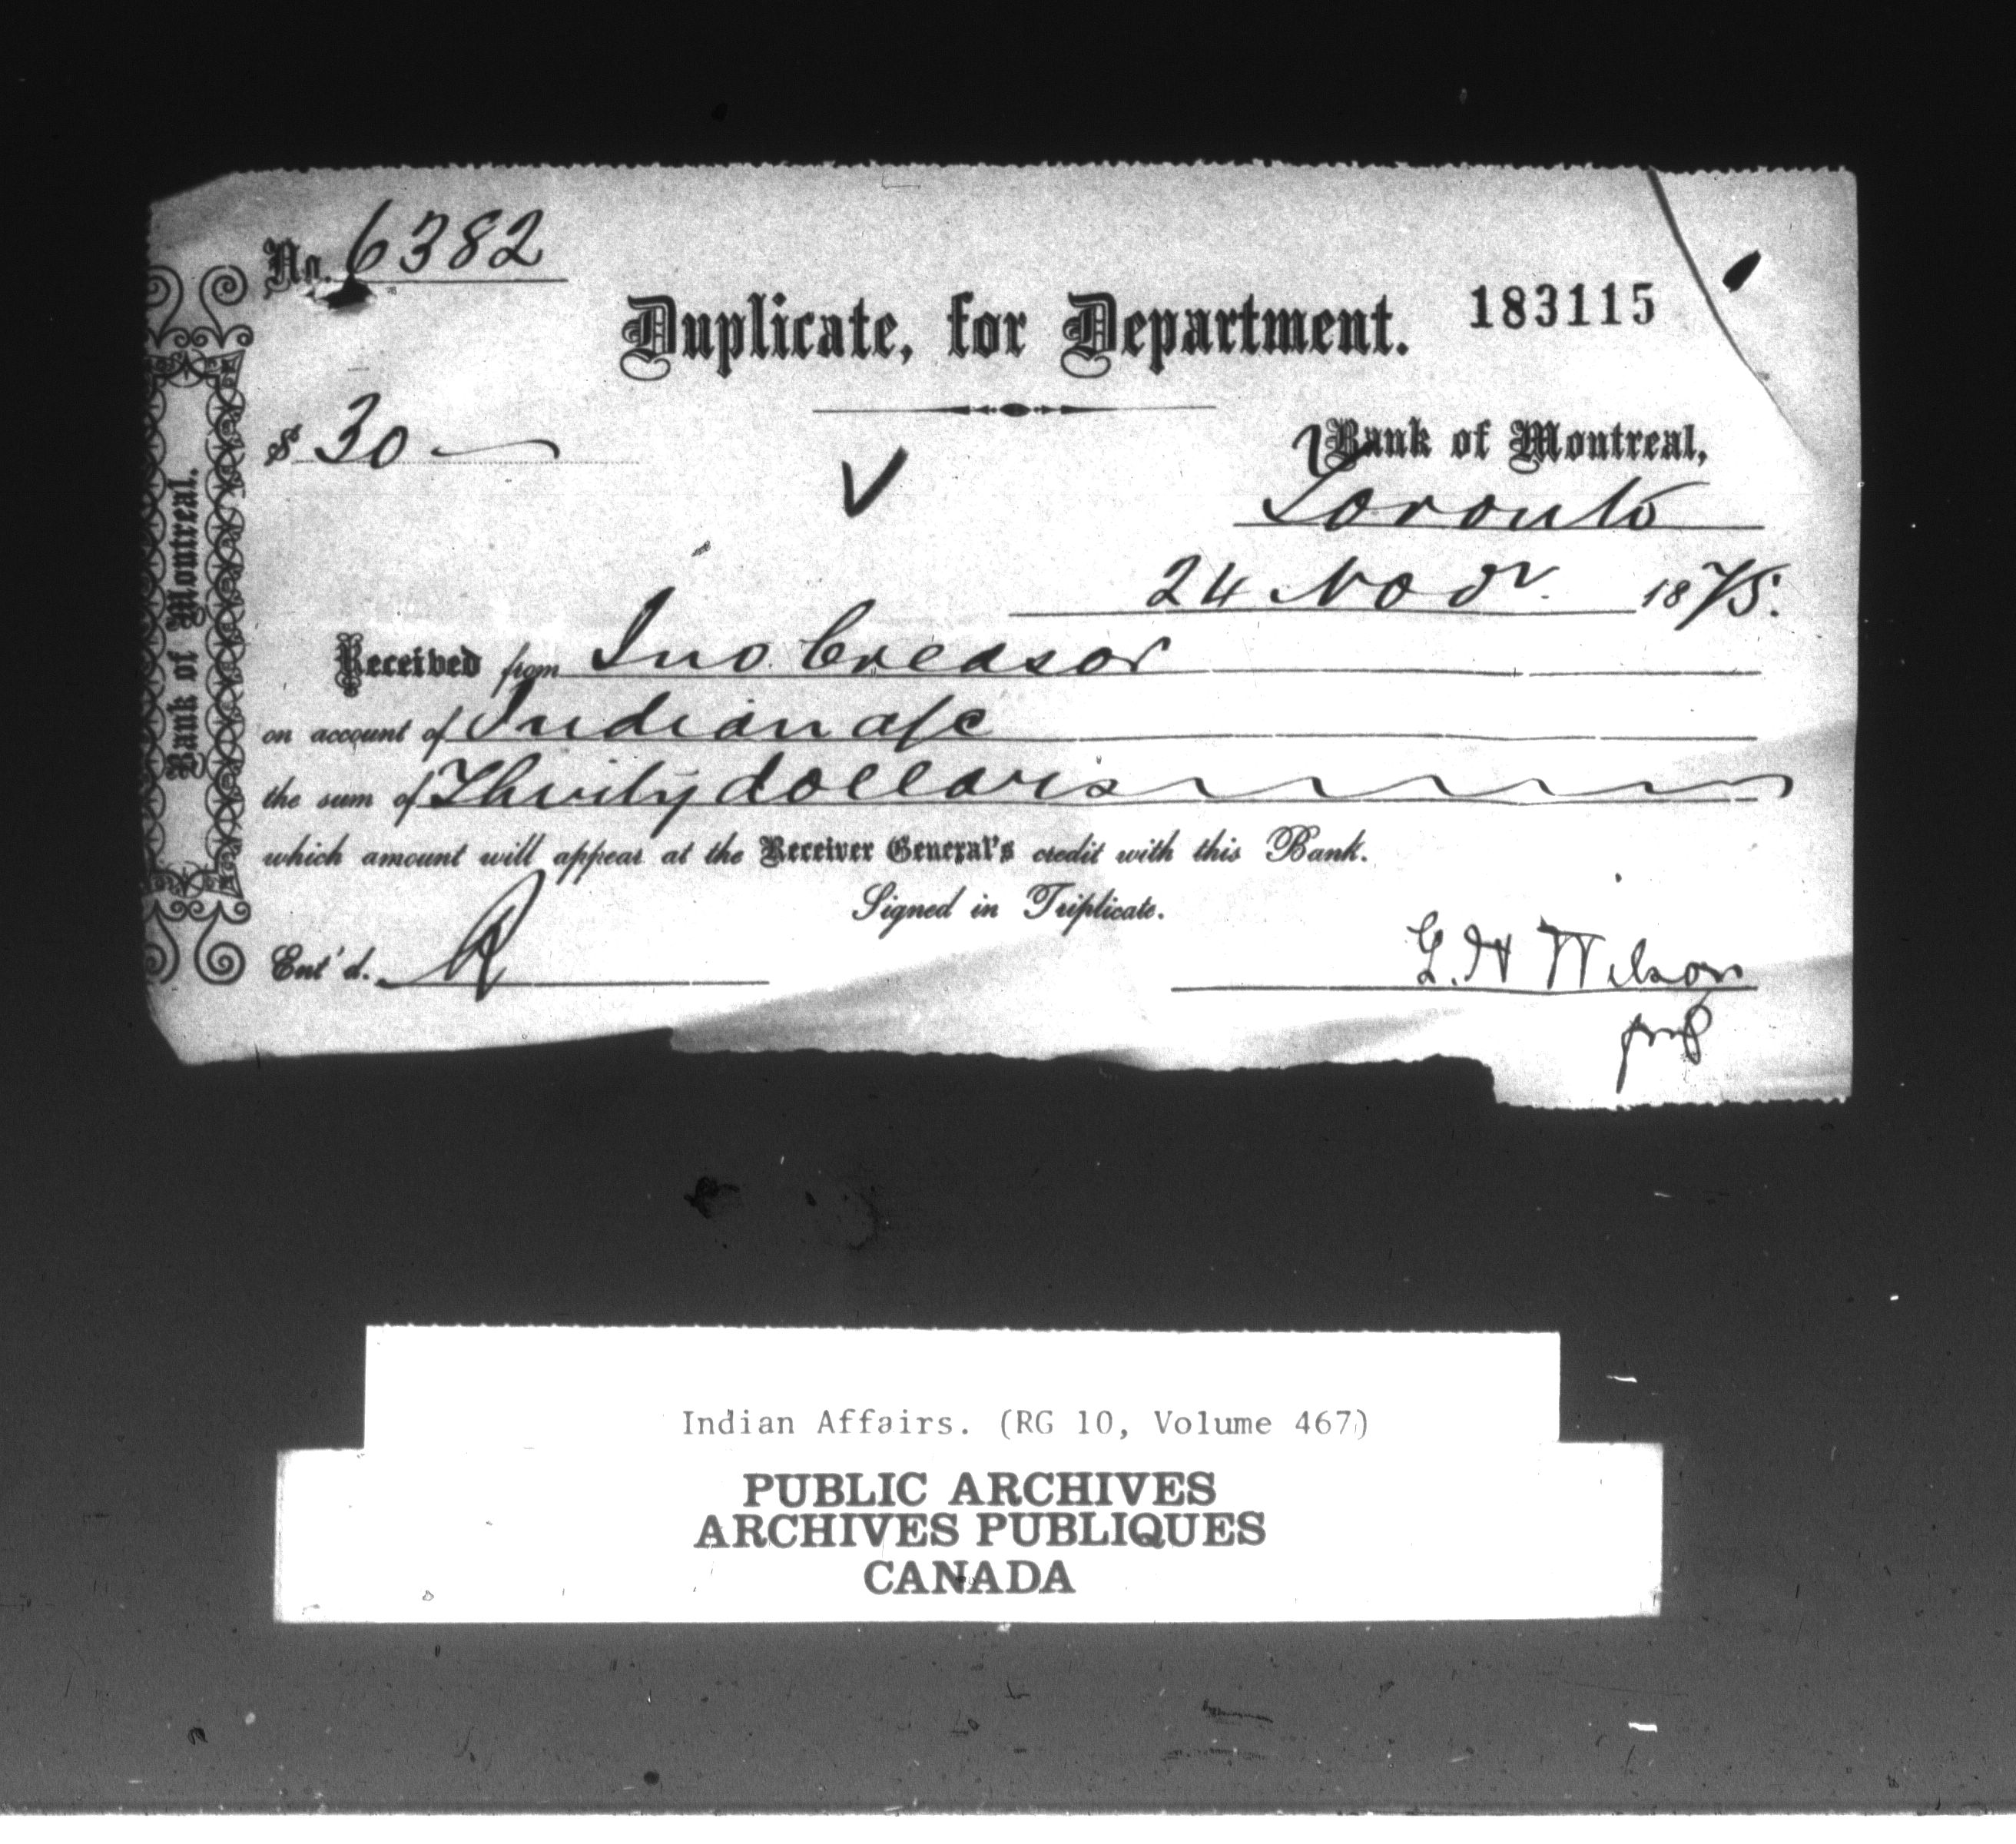 No. 6382
Duplicate, for Department. 183115
$ 30
Bank of Montreal,
Toronto
24 Novr. 1875.
Received from Jno Creasor
on account of Indian a/c
the sum of Thirty dollars
which amount will appear at the Receiver General's credit with this Bank.
Signed in Triplicate.
Ent'd.
G. H Wilson
Bank of Montreal.
Indian Affairs. (RG 10, Volume 467)
PUBLIC ARCHIVES
ARCHIVES PUBLIQUES
CANADA